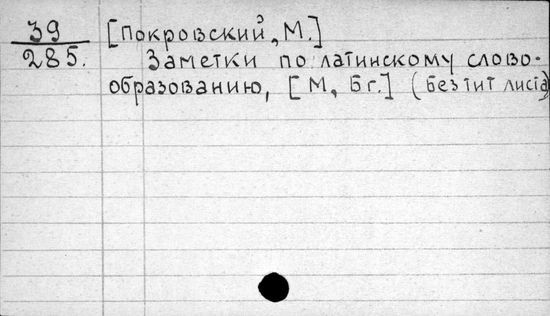 39 [Покровский, М.]
285. Заметки по латинскому слово-
образованию, [М, Б г.] (без тит листа)